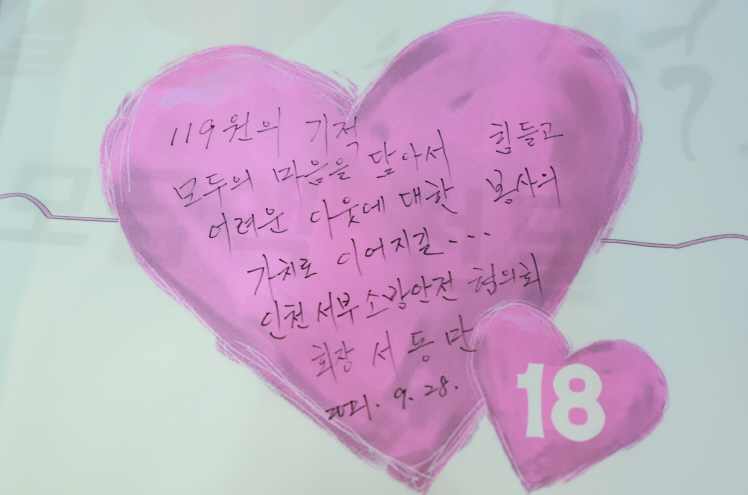 119원의 기적
모두의 마음을 담아서 힘들고
어려운 이웃에 대한 봉사의
가치로 이어지길...
인천서부소방안전 협의회
회장 서동만
2021. 9. 28.
18